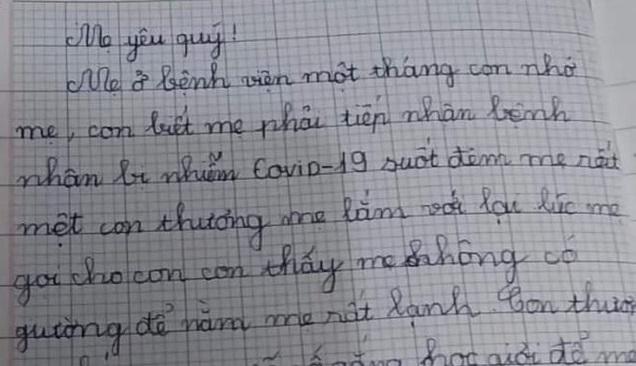 Mẹ yêu quý!
Mẹ ở bệnh viện một tháng con nhớ
mẹ, con biết mẹ phải tiếp nhận bệnh
nhân bị nhiễm Covip-19 suốt đêm mẹ rất
mệt con thương mẹ lắm với lại lúc mẹ
gọi cho con con thấy mẹ không có
giường để nằm mẹ rất lạnh. Con thươ
học giỏi để mẹ